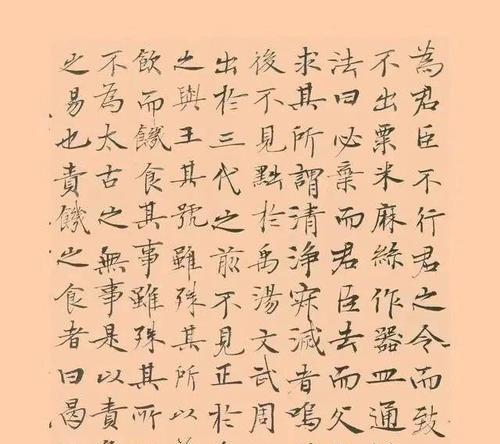 為君臣不行君之令而致
不出粟米麻絲作器皿通
法曰必棄而君臣去而父
求其所謂清淨寂滅者嗚
後不見黜於禹湯文武周
出於三代之前不見正於
之與王其號雖殊其所以
飲而饑食其事雖殊其所
不為太古之無事是以責
之易也責饑之食者曰曷